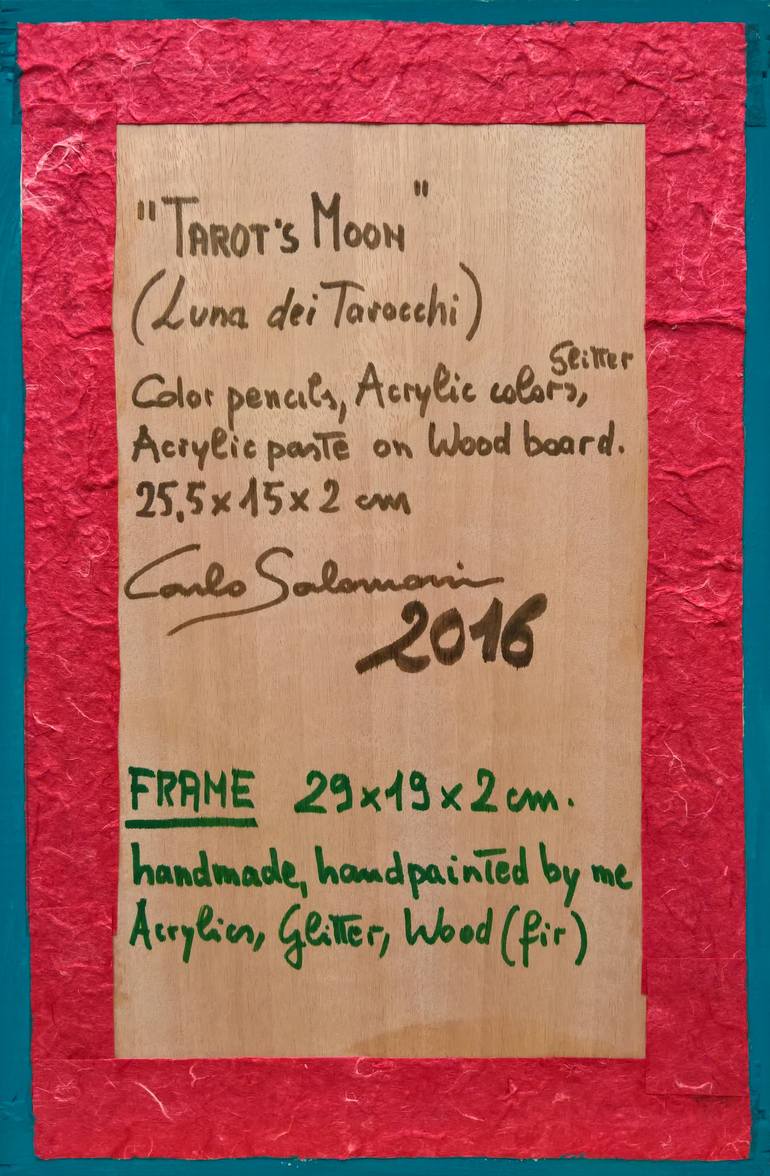 "TAROT'S MOON"
(Luna dei Tarocchi)
Glitter
Color pencils, Acrylic colors,
Acrylic paste on Wood board.
25,5x15x2 cm
Carlo Salomoni
2016
FRAME 29x19x2 cm.
handmade, handpainted by me
Acrylics, Glitter, Wood (fir)